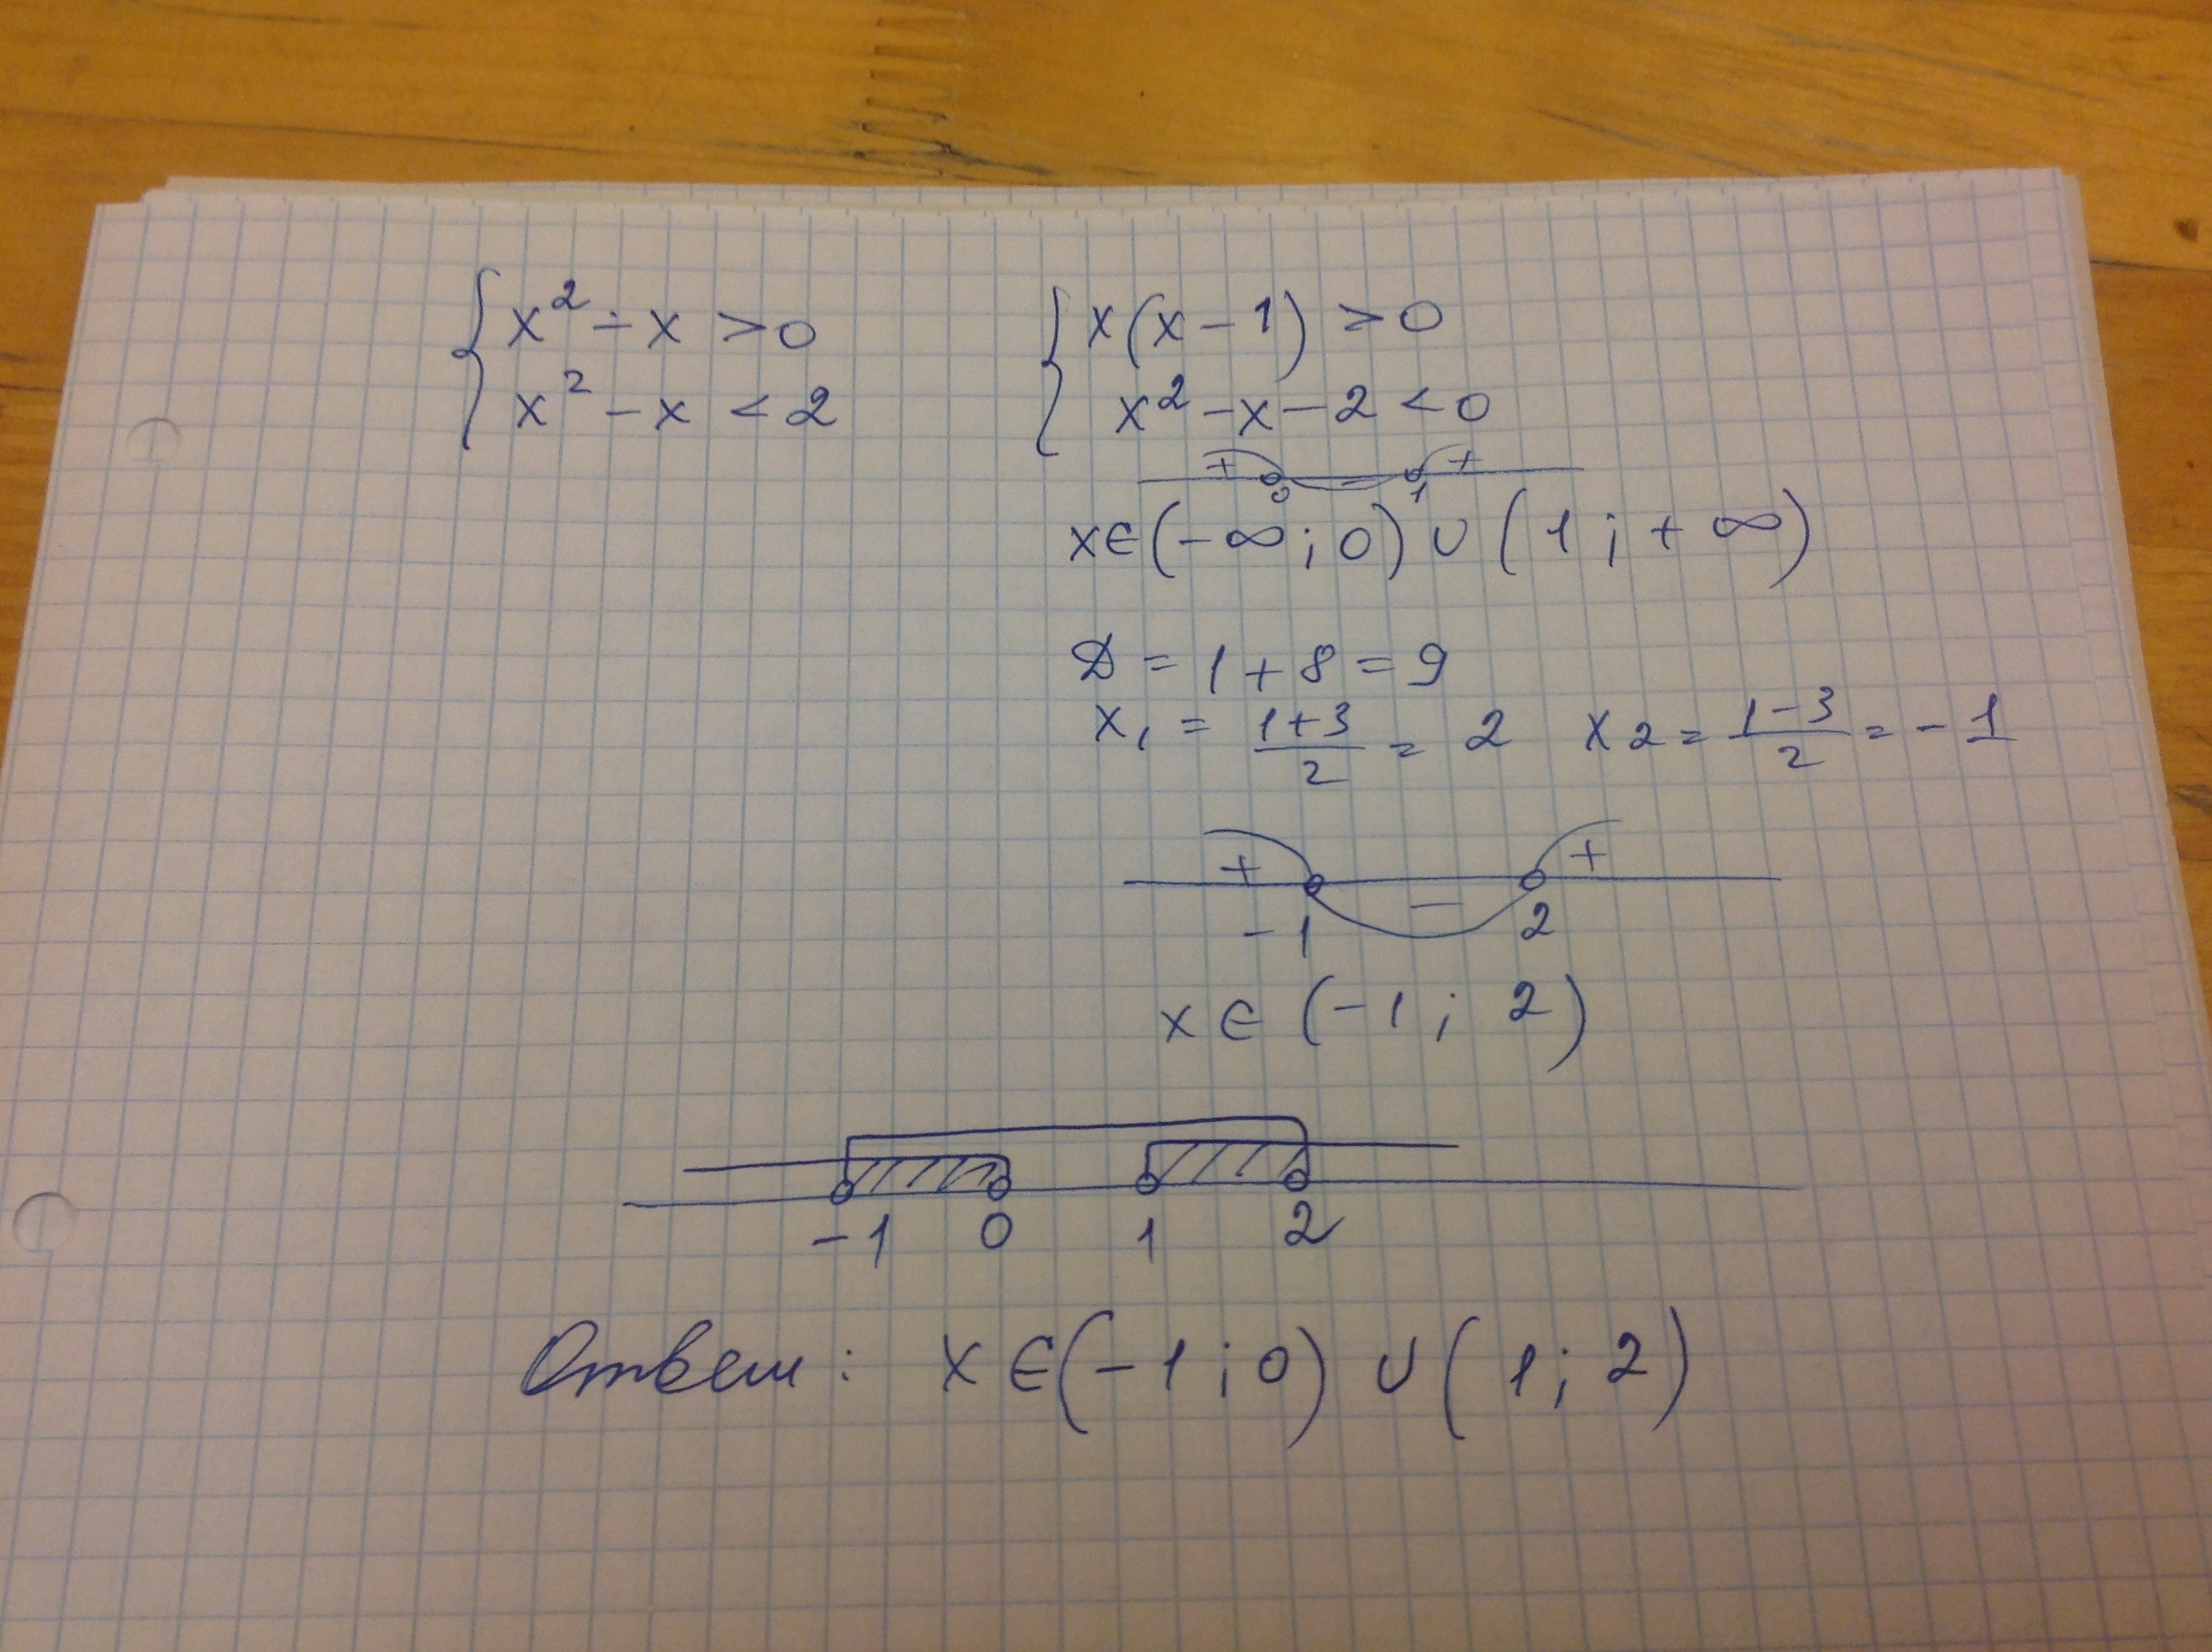 { x² - x > 0
x² - x < 2
{ x(x - 1) > 0
x² - x - 2 < 0
+ - +
0 1
x∈(-∞; 0) ∪ (1; +∞)
D = 1 + 8 = 9
x₁ = (1+3)/2 = 2 x₂ = (1-3)/2 = -1
+ - +
-1 2
x ∈ (-1; 2)
-1 0 1 2
Ответ: x ∈(-1; 0) ∪ (1; 2)